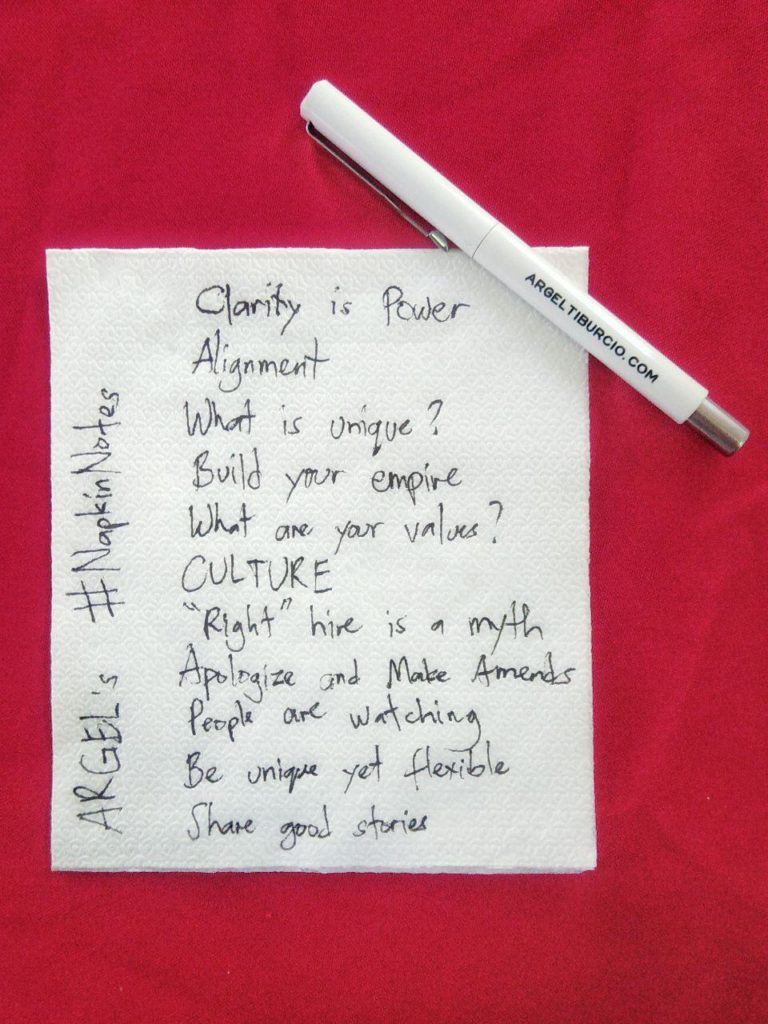 ARGELTIBURCIO.COM
Clarity is Power
Alignment
What is unique?
Build your empire
What are your values?
CULTURE
"Right" hire is a myth
Apologize and Make Amends
People are watching
Be unique yet flexible
Share good stories
ARGEL's #NapkinNotes